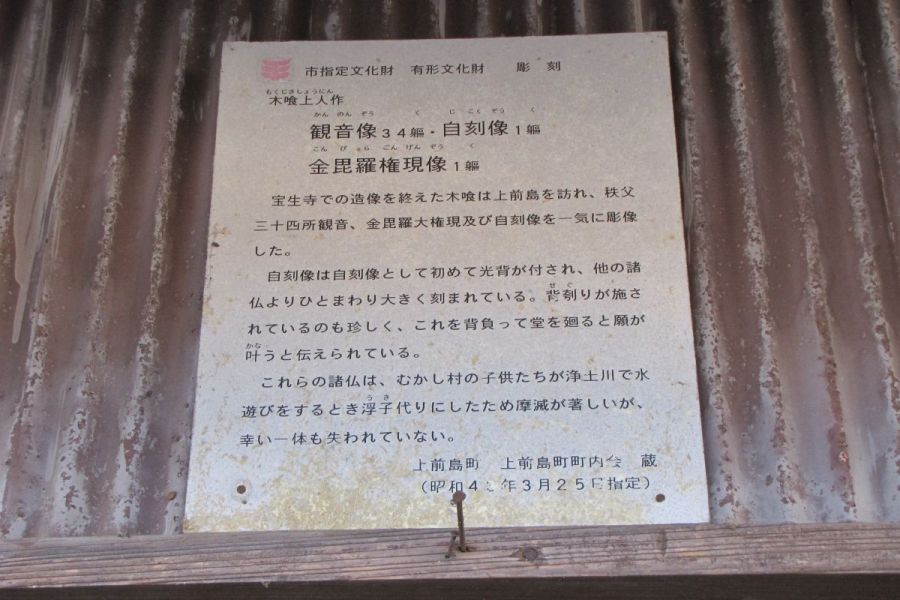 市指定文化財　有形文化財　彫刻
もくじきしょうにん
木喰上人作
かんのんぞう　く　じこくぞう　く
観音像34軀・自刻像1軀
こんぴらごんげんぞう　く
金毘羅権現像1軀
宝生寺での造像を終えた木喰は上前島を訪れ、秩父
三十四所観音、金毘羅大権現及び自刻像を一気に彫像
した。
自刻像は自刻像として初めて光背が付され、他の諸
せぐ
仏よりひとまわり大きく刻まれている。背刳りが施さ
れているのも珍しく、これを背負って堂を廻ると願が
かな
叶うと伝えられている。
これらの諸仏は、むかし村の子供たちが浄土川で水
うき
遊びをするとき浮子代りにしたため摩滅が著しいが、
幸い一体も失われていない。
上前島町　上前島町町内会　蔵
（昭和4年3月25日指定）